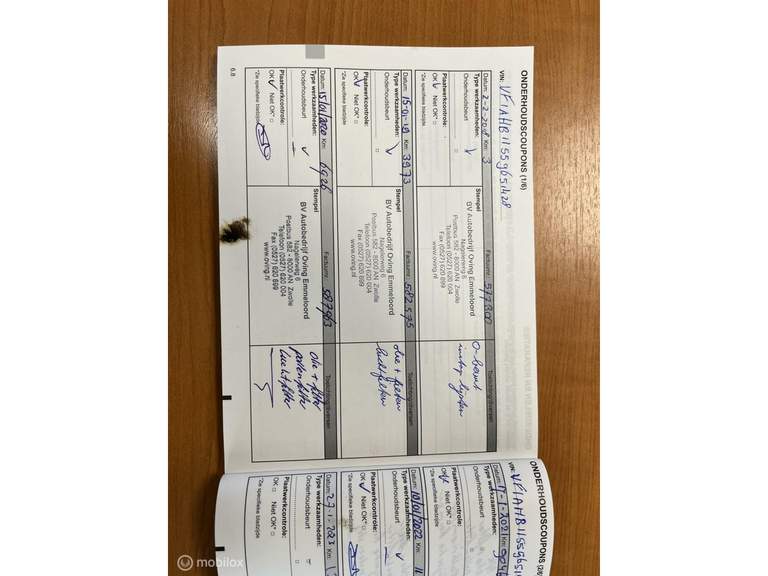 ONDERHOUDSCOUPONS (1/6)
VIN: VF1AHB115
Datum: 2-2-2018 Km: 3
Factuurnr:
Toelichting/diversen
Type werkzaamheden:
Onderhoudsbeurt
Plaatwerkcontrole:
OK Niet OK*
*Zie specifieke bladzijde
Stempel
BV Autobedrijf Oving Emmeloord
Nagelerweg 6
Postbus 582 - 8000 AN Zwolle
Telefoon (0527) 620 004
Fax (0527) 620 699
www.oving.nl
Datum: 15-01-19 Km: 3973
Factuurnr: 582575
Toelichting/diversen
Type werkzaamheden:
Onderhoudsbeurt
Plaatwerkcontrole:
OK Niet OK*
*Zie specifieke bladzijde
Stempel
BV Autobedrijf Oving Emmeloord
Nagelerweg 6
Postbus 582 - 8000 AN Zwolle
Telefoon (0527) 620 004
Fax (0527) 620 699
www.oving.nl
olie + filter
luchtfilter
Datum: 15/01/2020 Km: 6926
Factuurnr: 587963
Toelichting/diversen
Type werkzaamheden:
Onderhoudsbeurt
Plaatwerkcontrole:
OK Niet OK*
*Zie specifieke bladzijde
Stempel
BV Autobedrijf Oving Emmeloord
Nagelerweg 6
Postbus 582 - 8000 AN Zwolle
Telefoon (0527) 620 004
Fax (0527) 620 699
www.oving.nl
olie + filter
pollenfilter
luchtfilter
6.8
ONDERHOUDSCOUPONS (2/6)
VIN: VF1AHB115
Datum: Km:
Type werkzaamheden:
Onderhoudsbeurt
Plaatwerkcontrole:
OK Niet OK*
*Zie specifieke bladzijde
Datum: 10/01/2022 Km:
Type werkzaamheden:
Onderhoudsbeurt
Plaatwerkcontrole:
OK Niet OK*
*Zie specifieke bladzijde
Datum: 27-1-2023 Km:
Type werkzaamheden:
Onderhoudsbeurt
Plaatwerkcontrole:
OK Niet OK*
*Zie specifieke bladzijde
mobilox